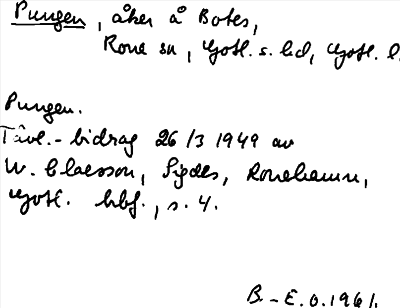 Pungen, åker å Botes,
Rone sn, Gotl. s. hd, Gotl. l.
Pungen.
Tävl.-bidrag 26/3 1949 av
W. Claesson, Sigdes, Ronehamn,
Gotl. hbf., s. 4.
B.-E.O. 1961